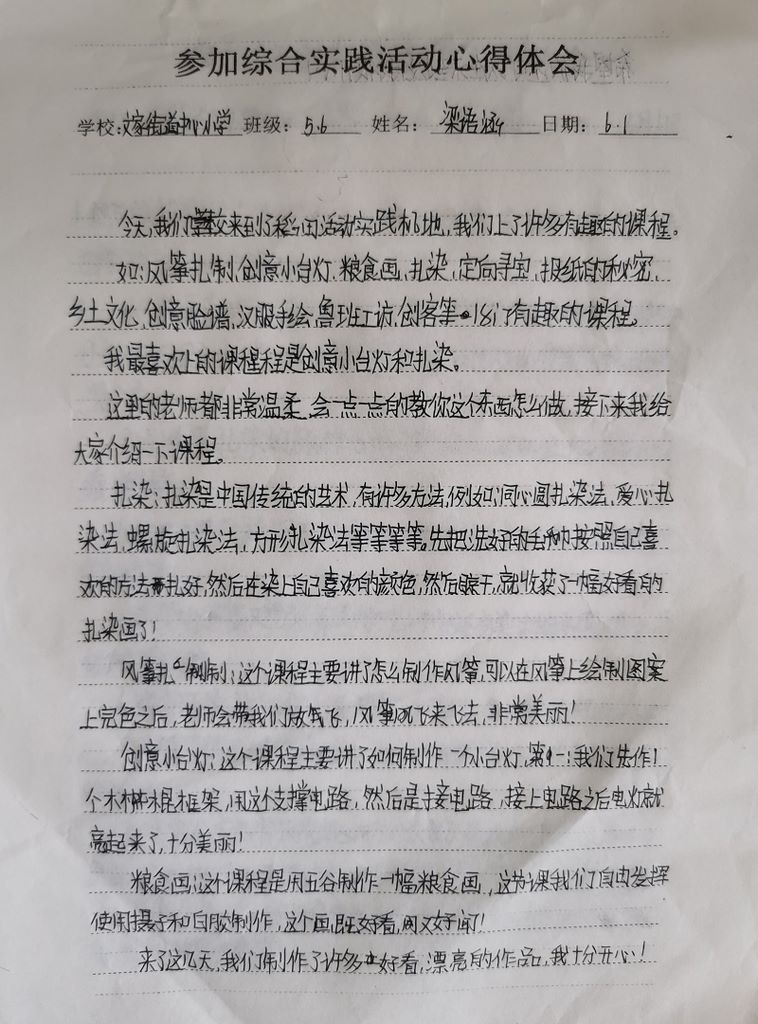 参加综合实践活动心得体会
学校:文家街道中心小学 班级: 5.6 姓名: 梁语涵 日期: 6.1
今天,我们学校来到了稻田活动实践机地,我们上了许多有趣的课程。
如:风筝扎制,创意小台灯.粮食画,扎染,定向寻宝,报纸的秘密,
乡土文化,创意脸谱,汉服手绘,鲁班工访,创客等18门有趣的课程。
我最喜欢上的课程程是创意小台灯和扎染。
这里的老师都非常温柔,会一点一点的教你这个东西怎么做,接下来我给
大家介绍一下课程。
扎染:扎染是中国传统的艺术,有许多方法,例如:同心圆扎染法,爱心扎
染法,螺旋扎染法,方形扎染法等等等等。先把洗好的手帕按照自己喜
欢的方法扎好,然后在染上自己喜欢的颜色,然后晾干,就收获了一幅好看的
扎染画了!
风筝扎制:这个课程主要讲了怎么制作风筝,可以在风筝上绘制图案
上完色之后,老师会带我们放飞,风筝飞来飞去,非常美丽!
创意小台灯:这个课程主要讲了如何制作一个小台灯.第1:我们先作1
个木棍框架,用这个支撑电路,然后是接电路,接上电路之后电灯就
亮起来了,十分美丽!
粮食画:这个课程是用五谷制作一幅粮食画,这节课我们自由发挥
使用摄子和白胶制作,这个画既好看,闻又好闻!
来了这几天,我们制作了许多好看,漂亮的作品,我十分开心!